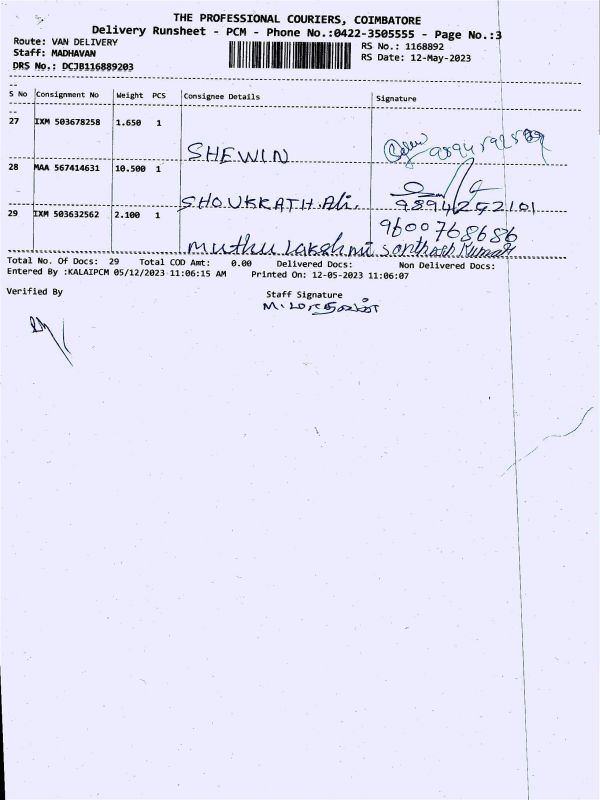 THE PROFESSIONAL COURIERS, COIMBATORE
Delivery Runsheet - PCM - Phone No.:0422-3505555 - Page No.:3
Route: VAN DELIVERY
Staff: MADHAVAN
DRS No.: DCJB116889203
RS No.: 1168892
RS Date: 12-May-2023
S No Consignment No Weight PCS Consignee Details Signature
27 IXM 503678258 1.650 1
SHEWIN
28 MAA 567414631 10.500 1
SHOUKKATH.Ali. 9894252101
29 IXM 503632562 2.100 1 9600768686
Muthu Lakshmi Santhosh Kumar
Total No. Of Docs: 29 Total COD Amt: 0.00 Delivered Docs: Non Delivered Docs:
Entered By :KALAIPCM 05/12/2023 11:06:15 AM Printed On: 12-05-2023 11:06:07
Verified By Staff Signature